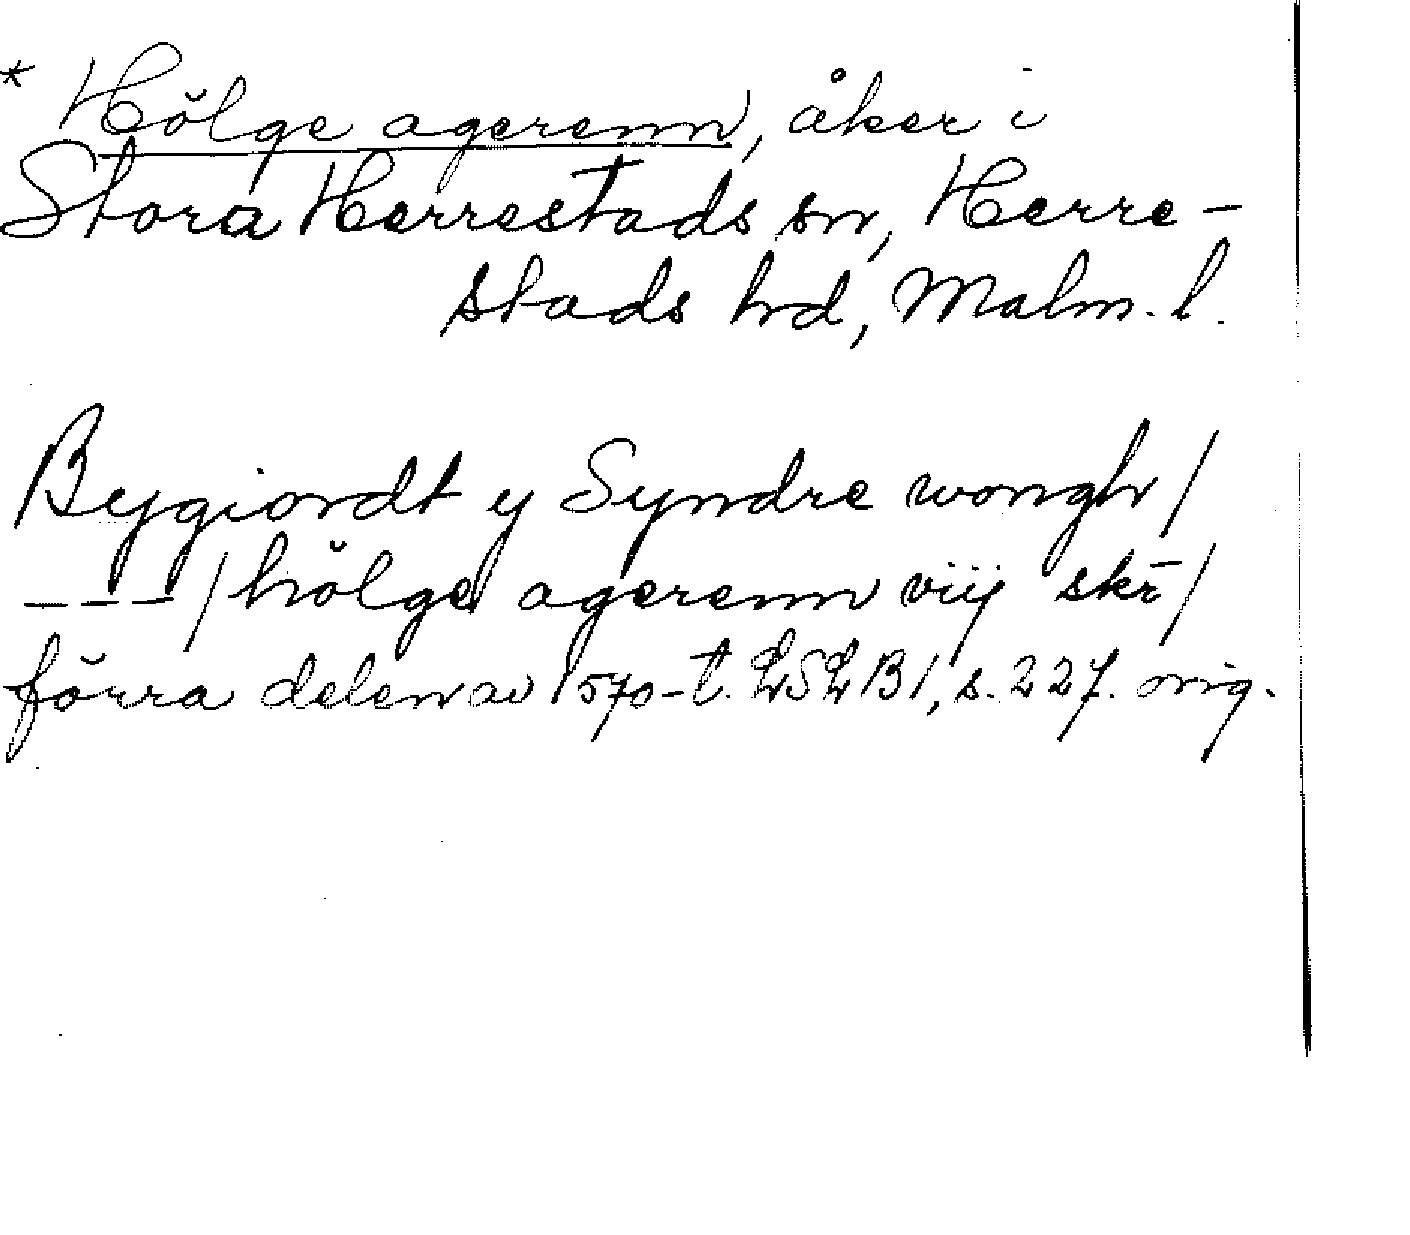 * Hölge agerenn, åker i
Stora Herrestads sn, Herre-
stads hd, Malm. l.
Bygiordt y Syndre wongh/
---/hölge agerenn viij skr̄/
förra delen av 1570-t. LSLB1, s. 227. orig.